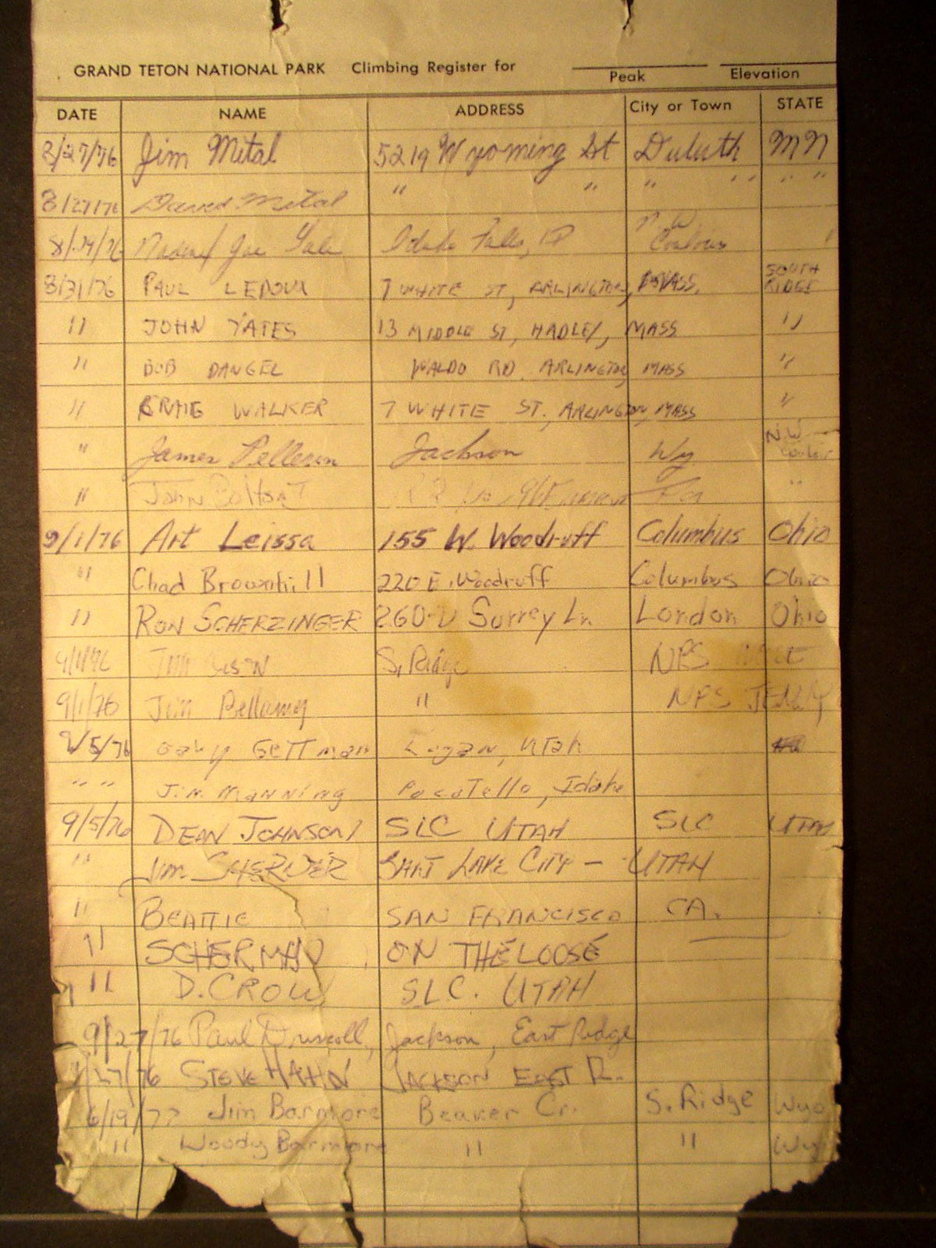 GRAND TETON NATIONAL PARK Climbing Register for
Peak Elevation
DATE NAME ADDRESS City or Town STATE
8/27/76 Jim Mital 5219 Wyoming St Duluth MN
8/27/76 David Mital " " " " " " "
8/29/76 Idaho Falls, ID N.W.
8/31/76 PAUL LEDOUX 7 WHITE ST, ARLINGTON, MASS. SOUTH RIDGE
" JOHN YATES 13 MIDDLE ST, HADLEY, MASS "
" BOB DANGEL WALDO RD. ARLINGTON MASS "
" CRAIG WALKER 7 WHITE ST, ARLINGTON, MASS "
" James Jackson Wy N.W.
" John "
9/1/76 Art Leissa 155 W. Woodruff Columbus Ohio
" Chad Brownhill 220 E. Woodruff Columbus Ohio
" RON SCHERZINGER 260 Surrey Ln London Ohio
9/1/76 S. Ridge NPS
9/1/76 Jim Bellamy " NPS JENNY
9/5/76 Gary Gettman Logan, Utah
" " Jim Manning Pocatello, Idaho
9/5/76 DEAN JOHNSON SLC UTAH SLC UTAH
" Jim SALT LAKE CITY - UTAH
" BEATTIE SAN FRANCISCO CA.
" SCHERMAN ON THE LOOSE
" D. CROW S.L.C. UTAH
9/27/76 Paul Driscoll, Jackson, East Ridge
9/27/76 STEVE HAHN JACKSON EAST R.
6/19/77 Jim Barmore Beaver Cr. S. Ridge Wyo
" Woody Barmore " " Wy